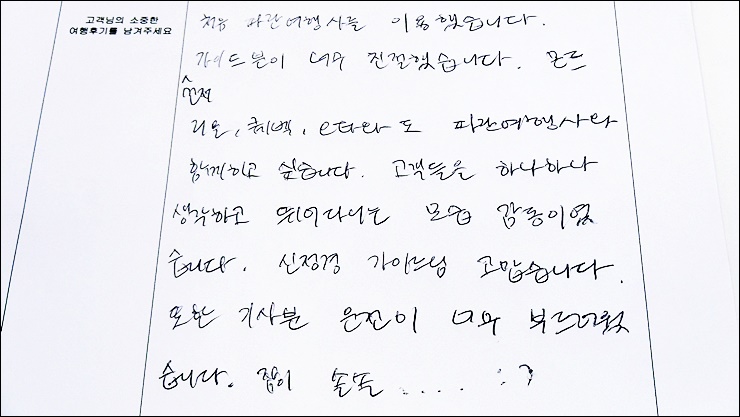 고객님의 소중한
여행후기를 남겨주세요
처음 파란여행사를 이용했습니다.
가이드분이 너무 친절했습니다. 몬트
리올, 퀘벡, e타와도 파란여행사와
함께하고 싶습니다. 고객들을 하나하나
생각하고 뛰어다니는 모습 감동이였
습니다. 신정경 가이드님 고맙습니다.
또한 기사분 운전이 너무 부드러웠
습니다. 잠이 솔솔.... :?